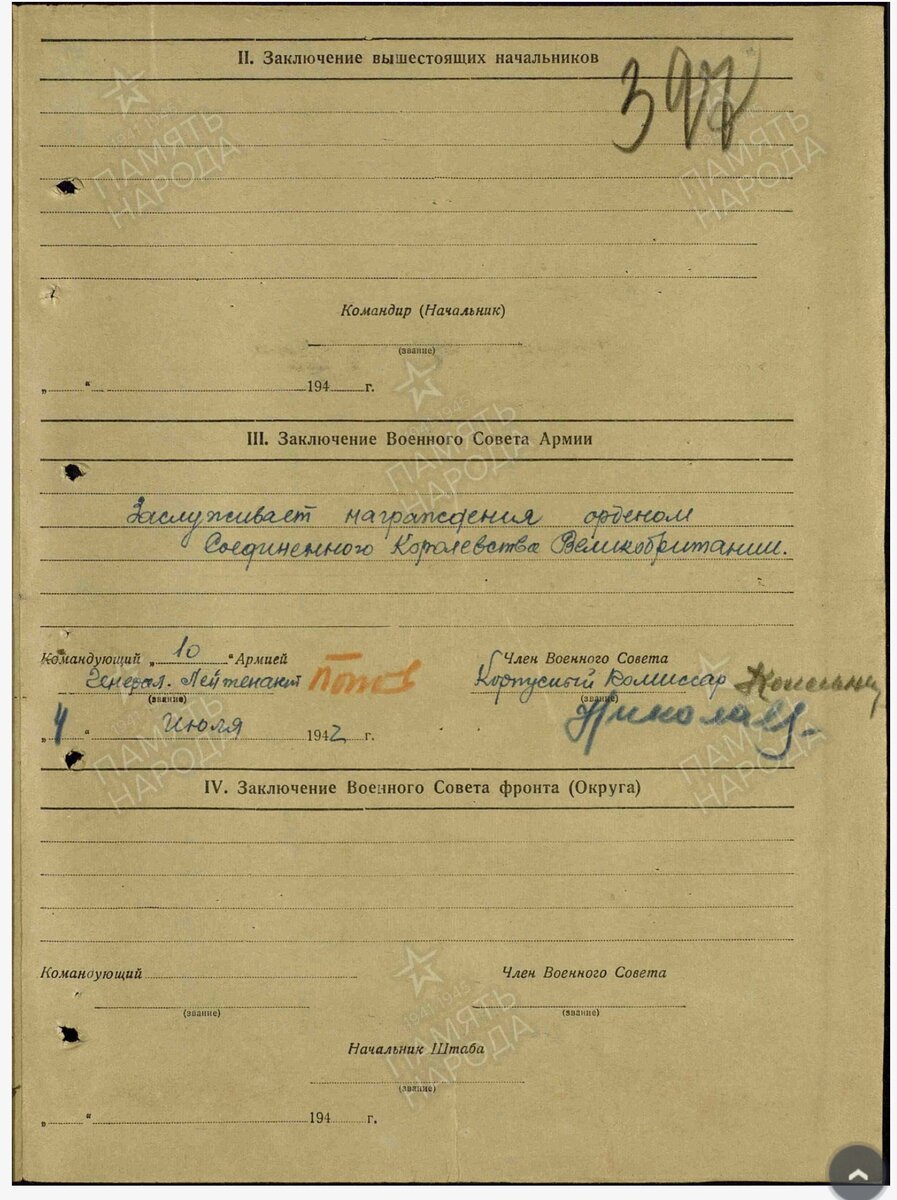 II. Заключение вышестоящих начальников
397
Командир (Начальник)
(звание)
„ “ 194 г.
III. Заключение Военного Совета Армии
Заслуживает награждения орденом
Соединенного Королевства Великобритании.
Командующий „ 10 “ Армией
Генерал. Лейтенант Попов
(звание)
Член Военного Совета
Корпусный Комиссар
(звание)
Николаев
„ 4 “ Июля 1942 г.
IV. Заключение Военного Совета фронта (Округа)
Командующий
(звание)
Член Военного Совета
(звание)
Начальник Штаба
(звание)
„ “ 194 г.
1941-1945
ПАМЯТЬ
НАРОДА